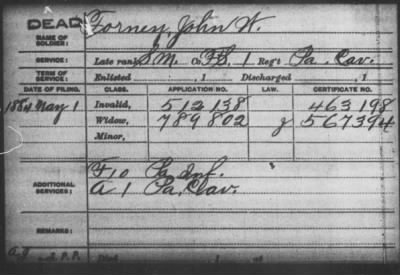 DEAD
NAME OF SOLDIER: Forney, John W.
SERVICE: Late rank, S.M. Co. FS, 1 Reg't Pa. Cav.
TERM OF SERVICE: Enlisted , 1 Discharged , 1
DATE OF FILING. CLASS. APPLICATION NO. LAW. CERTIFICATE NO.
1884 May 1 Invalid, 512138 463198
Widow, 789802 g 567394
Minor,
ADDITIONAL SERVICES: F 10 Pa Inf.
A 1 Pa. Cav.
REMARKS: